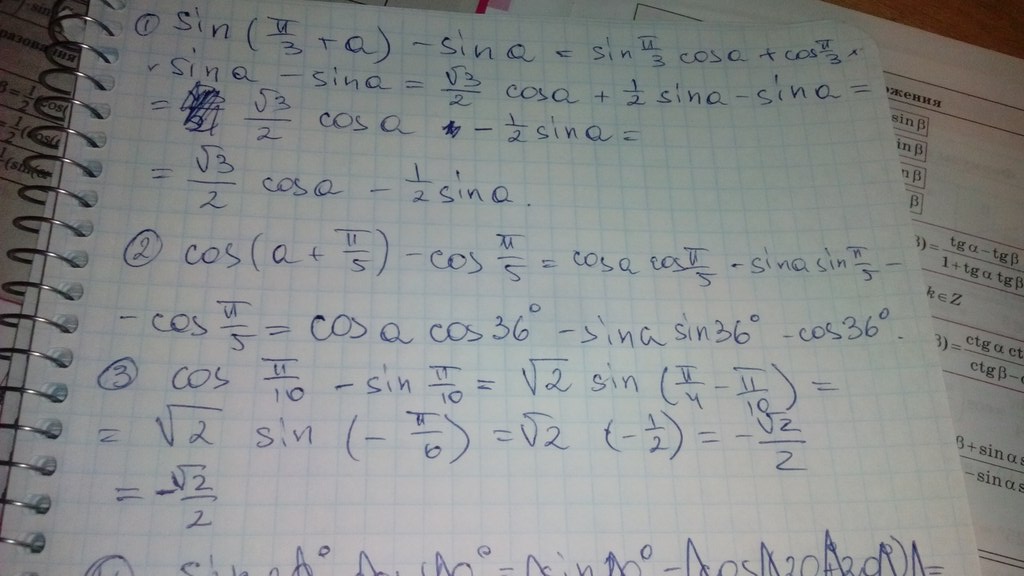 ① sin(π/3 + a) - sin a = sin π/3 cos a + cos π/3 ×
× sin a - sin a = √3/2 cos a + 1/2 sin a - sin a =
= √3/2 cos a - 1/2 sin a =
= √3/2 cos a - 1/2 sin a.
② cos(a + π/5) - cos π/5 = cos a cos π/5 - sin a sin π/5 -
- cos π/5 = cos a cos 36° - sin a sin 36° - cos 36°.
③ cos π/10 - sin π/10 = √2 sin (π/4 - π/10) =
= √2 sin (- π/6) = √2 (-1/2) = - √2/2
= -√2/2
жения
sin β
in β
β
β) = tg α - tg β / 1 + tg α tg β
k ∈ Z
β) = ctg α ct
ctg β -
β + sin α s
- sin α s